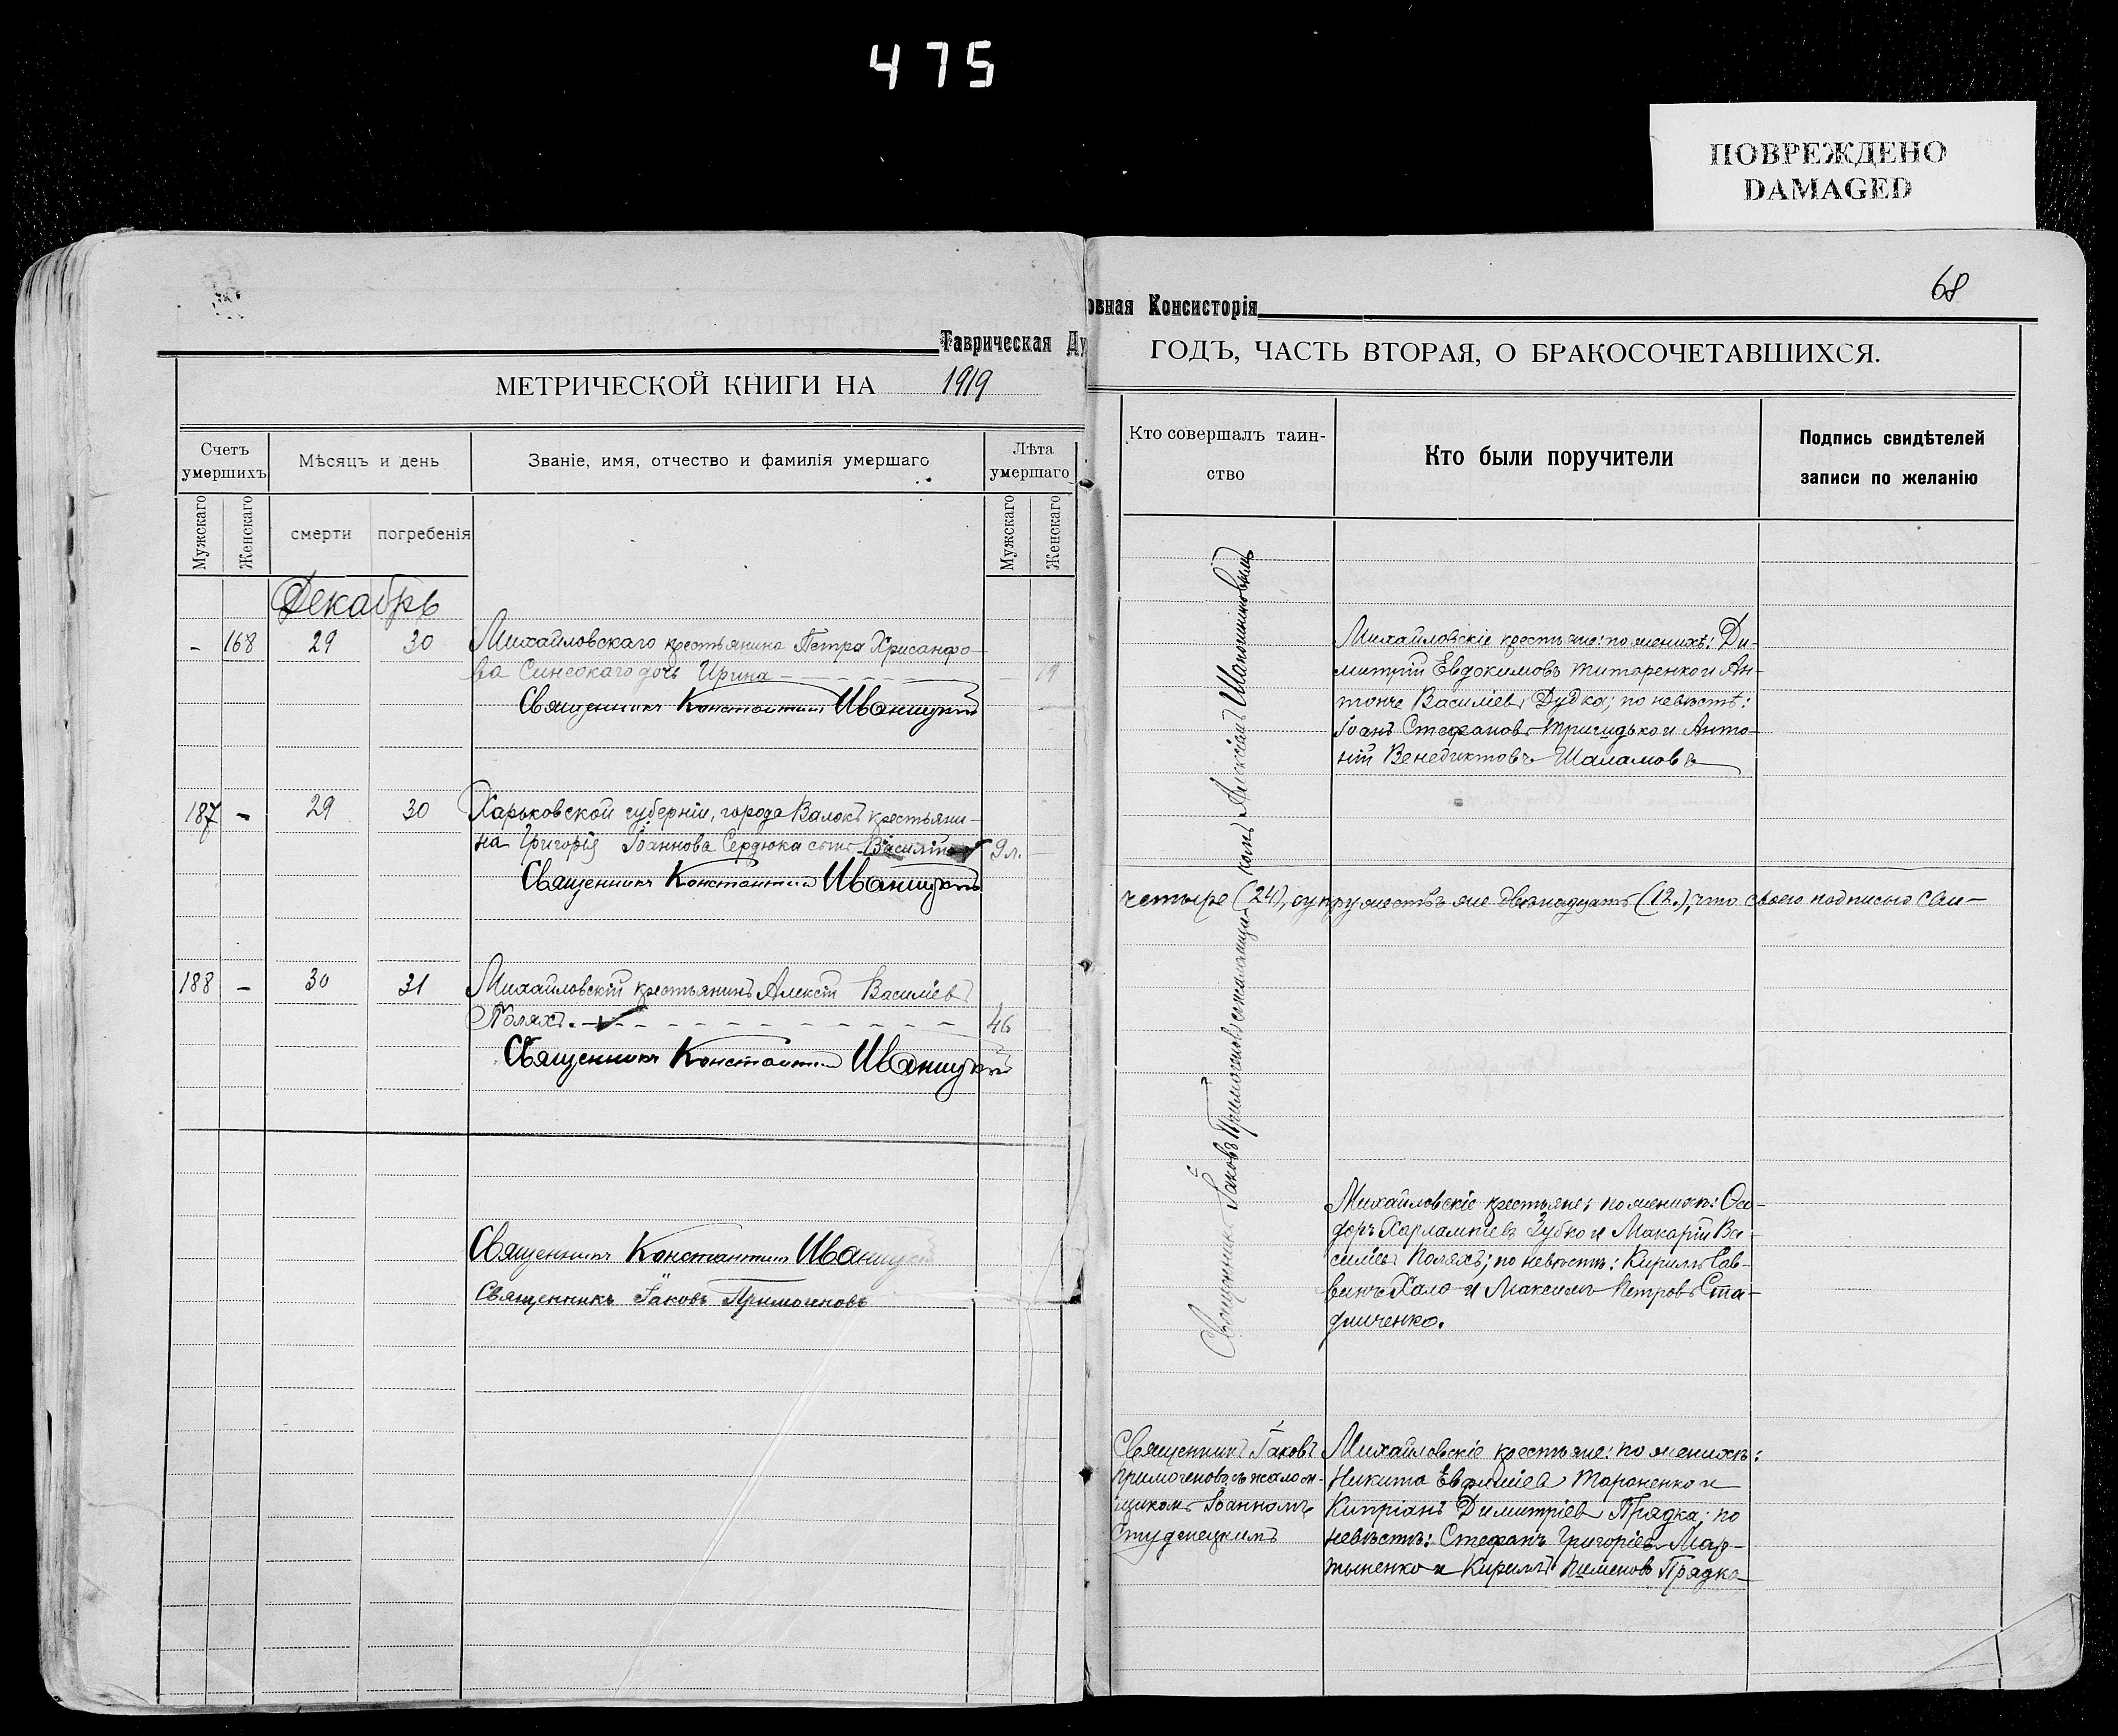 475
ПОВРЕЖДЕНО
DAMAGED
Таврическая Ду
МЕТРИЧЕСКОЙ КНИГИ НА 1919
Счетъ умершихъ
Мѣсяцъ и день
Званіе, имя, отчество и фамилія умершаго
Лѣта умершаго
Мужскаго
Женскаго
смерти
погребенія
Мужскаго
Женскаго
Декабрь
- 168 29 30 Михайловскаго крестьянина Петра Хрисанфо-
ва Синеокаго дочь Ирина - 19
Священникъ Константин Иваницкий
187 - 29 30 Харьковской губерніи, города Валокъ крестьяни-
на Григорія Іоаннова Сердюка сынъ Василій 9 л.
Священникъ Константин Иваницкий
188 - 30 31 Михайловскій крестьянинъ Алексій Васильевъ
Поляхъ. 46
Священникъ Константин Иваницкий
Священникъ Константин Иваницкий
Священникъ Іаковъ Примоченовъ
68
овная Консисторія
ГОДЪ, ЧАСТЬ ВТОРАЯ, О БРАКОСОЧЕТАВШИХСЯ.
Кто совершалъ таин-
ство
Кто были поручители
Подпись свидѣтелей
записи по желанію
Священникъ Іаковъ Примоченовъ съ псаломщикомъ Алексіемъ Шапошниковымъ
Михайловскіе крестьяне: по женихѣ: Ди-
митрій Евдокимовъ Титаренко и Ан-
тоній Васильевъ Дудка; по невѣстѣ:
Іоанъ Стефановъ и Анто-
ній Венедиктовъ Шаламовъ
четыре (24), супружествъ же двѣнадцать (12.), что своею подписью сви-
Михайловскіе крестьяне: по женихѣ: Ѳео-
доръ Харлампіевъ Зубко и Макарій Ва-
сильевъ Поляхъ; по невѣстѣ: Кириллъ Сав-
винъ Хало и Максимъ Петровъ Ста-
дниченко.
Священникъ Іаковъ
Примоченовъ съ псалом-
щикомъ Іоанномъ
Студенецкимъ
Михайловскіе крестьяне: по женихѣ:
Никита Евфиміевъ Тараненко и
Кипріанъ Димитріевъ Прядка; по
невѣстѣ: Стефанъ Григоріевъ Мар-
тыненко и Кириллъ Пименовъ Прядка